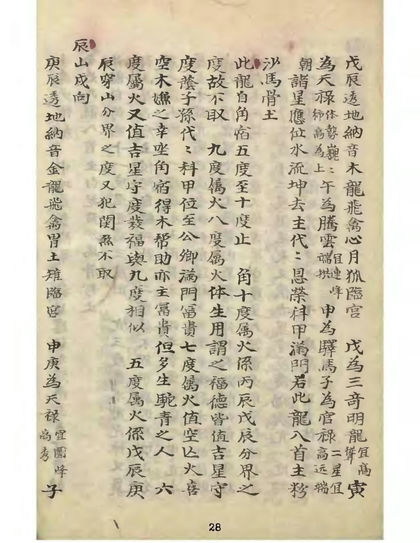 戊辰透地納音木龍飛禽心月狐臨宮 戊為三奇明龍宜高聳 寅
為天祿体勢巍巍師高為上 午為騰雲宜連峰端拱 申為驛馬子為官祿二星宜高遠端
朝諸星應位水流坤去主代〻恩榮科甲滿門若此龍八首主粉
沙馬骨土
此龍自角宿五度至十度止 角十度屬火係丙辰戊辰分界之
度故不取 九度屬火八度屬火体生用謂之福德皆值吉星守
度蔭子孫代〻科甲位至公卿滿門富貴七度屬火值空亡火喜
空木嫌之幸坐角宿得木幫助亦主富貴但多生駝青之人 六
度屬火又值吉星守度發福與九度相似 五度屬火係戊辰庚
辰穿山分界之度又犯関煞不取
辰山戌向
庚辰透地納音金龍飛禽胃土雉臨宮 申庚為天祿宜圓峰高秀 子
28